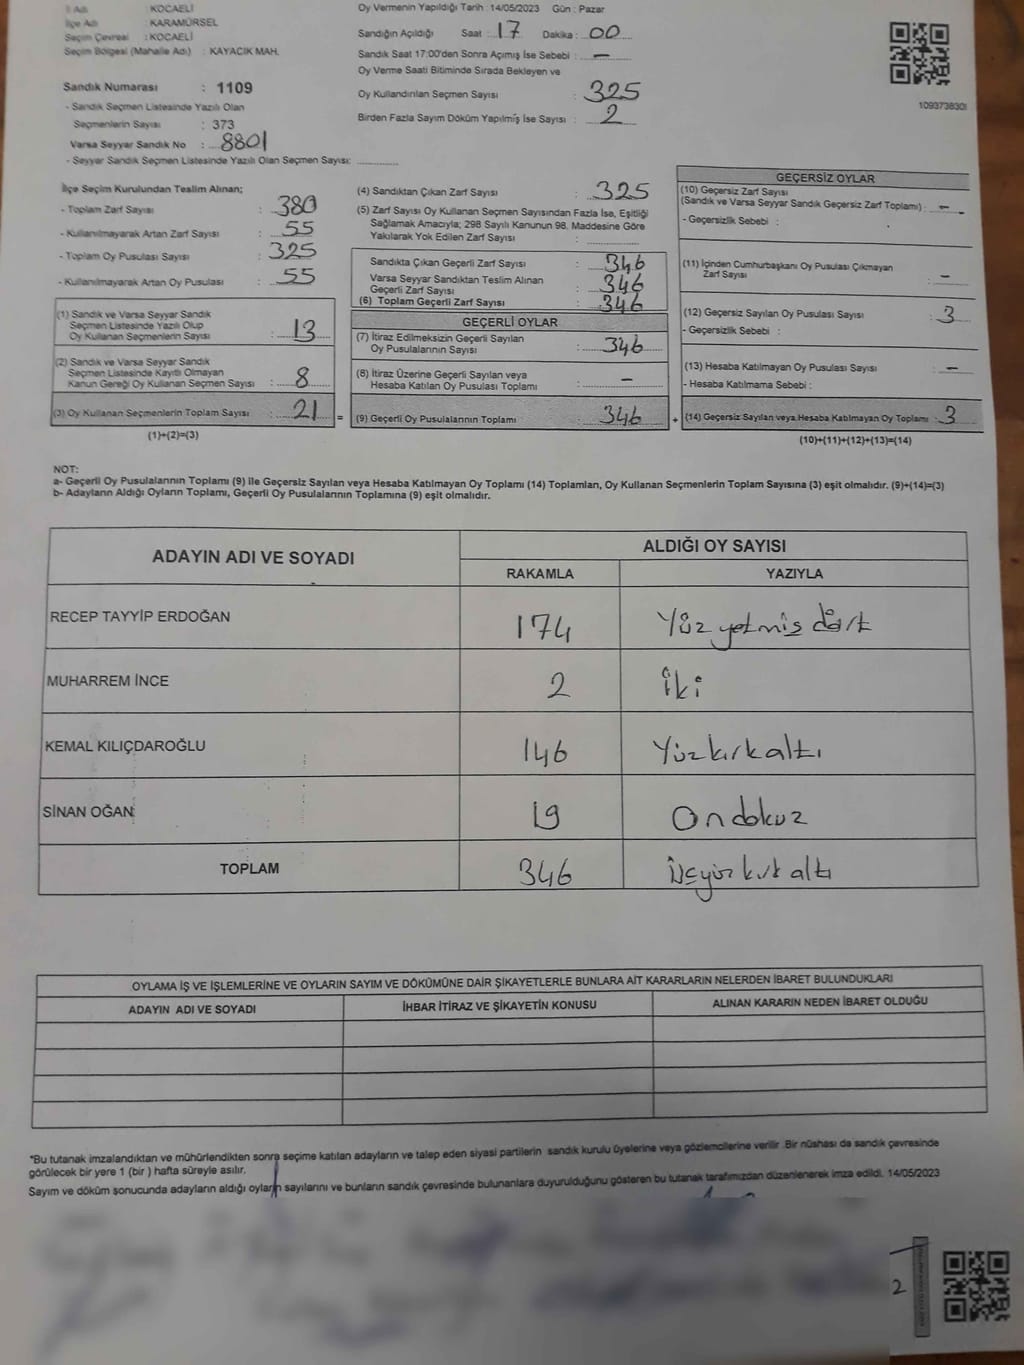 İl Adı : KOCAELİ
İlçe Adı : KARAMÜRSEL
Seçim Çevresi : KOCAELİ
Seçim Bölgesi (Mahalle Adı) : KAYACIK MAH.
Sandık Numarası : 1109
- Sandık Seçmen Listesinde Yazılı Olan
Seçmenlerin Sayısı : 373
Varsa Seyyar Sandık No : 8801
- Seyyar Sandık Seçmen Listesinde Yazılı Olan Seçmen Sayısı:
Oy Vermenin Yapıldığı Tarih : 14/05/2023 Gün : Pazar
Sandığın Açıldığı Saat : 17 Dakika : 00
Sandık Saat 17:00'den Sonra Açılmış İse Sebebi : —
Oy Verme Saati Bitiminde Sırada Bekleyen ve
Oy Kullandırılan Seçmen Sayısı : 325
Birden Fazla Sayım Döküm Yapılmış İse Sayısı : 2
109373830
İlçe Seçim Kurulundan Teslim Alınan;
- Toplam Zarf Sayısı : 380
- Kullanılmayarak Artan Zarf Sayısı : 55
- Toplam Oy Pusulası Sayısı : 325
- Kullanılmayarak Artan Oy Pusulası : 55
(1) Sandık ve Varsa Seyyar Sandık
Seçmen Listesinde Yazılı Olup
Oy Kullanan Seçmenlerin Sayısı : 13
(2) Sandık ve Varsa Seyyar Sandık
Seçmen Listesinde Kayıtlı Olmayan
Kanun Gereği Oy Kullanan Seçmen Sayısı : 8
(3) Oy Kullanan Seçmenlerin Toplam Sayısı : 21 =
(1)+(2)=(3)
(4) Sandıktan Çıkan Zarf Sayısı : 325
(5) Zarf Sayısı Oy Kullanan Seçmen Sayısından Fazla İse, Eşitliği
Sağlamak Amacıyla; 298 Sayılı Kanunun 98. Maddesine Göre
Yakılarak Yok Edilen Zarf Sayısı :
Sandıkta Çıkan Geçerli Zarf Sayısı : 346
Varsa Seyyar Sandıktan Teslim Alınan
Geçerli Zarf Sayısı : 346
(6) Toplam Geçerli Zarf Sayısı : 346
GEÇERLİ OYLAR
(7) İtiraz Edilmeksizin Geçerli Sayılan
Oy Pusulalarının Sayısı : 346
(8) İtiraz Üzerine Geçerli Sayılan veya
Hesaba Katılan Oy Pusulası Toplamı : —
(9) Geçerli Oy Pusulalarının Toplamı : 346 +
GEÇERSİZ OYLAR
(10) Geçersiz Zarf Sayısı
(Sandık ve Varsa Seyyar Sandık Geçersiz Zarf Toplamı) : —
- Geçersizlik Sebebi :
(11) İçinden Cumhurbaşkanı Oy Pusulası Çıkmayan
Zarf Sayısı : —
(12) Geçersiz Sayılan Oy Pusulası Sayısı : 3
- Geçersizlik Sebebi :
(13) Hesaba Katılmayan Oy Pusulası Sayısı : —
- Hesaba Katılmama Sebebi :
(14) Geçersiz Sayılan veya Hesaba Katılmayan Oy Toplamı : 3
(10)+(11)+(12)+(13)=(14)
NOT:
a- Geçerli Oy Pusulalarının Toplamı (9) ile Geçersiz Sayılan veya Hesaba Katılmayan Oy Toplamı (14) Toplamları, Oy Kullanan Seçmenlerin Toplam Sayısına (3) eşit olmalıdır. (9)+(14)=(3)
b- Adayların Aldığı Oyların Toplamı, Geçerli Oy Pusulalarının Toplamına (9) eşit olmalıdır.
ADAYIN ADI VE SOYADI
ALDIĞI OY SAYISI
RAKAMLA YAZIYLA
RECEP TAYYİP ERDOĞAN 174 Yüz yetmiş dört
MUHARREM İNCE 2 İki
KEMAL KILIÇDAROĞLU 146 Yüzkırkaltı
SİNAN OĞAN 19 Ondokuz
TOPLAM 346 üçyüz kırk altı
OYLAMA İŞ VE İŞLEMLERİNE VE OYLARIN SAYIM VE DÖKÜMÜNE DAİR ŞİKAYETLERLE BUNLARA AİT KARARLARIN NELERDEN İBARET BULUNDUKLARI
ADAYIN ADI VE SOYADI İHBAR İTİRAZ VE ŞİKAYETİN KONUSU ALINAN KARARIN NEDEN İBARET OLDUĞU
*Bu tutanak imzalandıktan ve mühürlendikten sonra seçime katılan adayların ve talep eden siyasi partilerin sandık kurulu üyelerine veya gözlemcilerine verilir. Bir nüshası da sandık çevresinde
görülecek bir yere 1 (bir) hafta süreyle asılır.
Sayım ve döküm sonucunda adayların aldığı oyların sayılarını ve bunların sandık çevresinde bulunanlara duyurulduğunu gösteren bu tutanak tarafımızdan düzenlenerek imza edildi. 14/05/2023
2